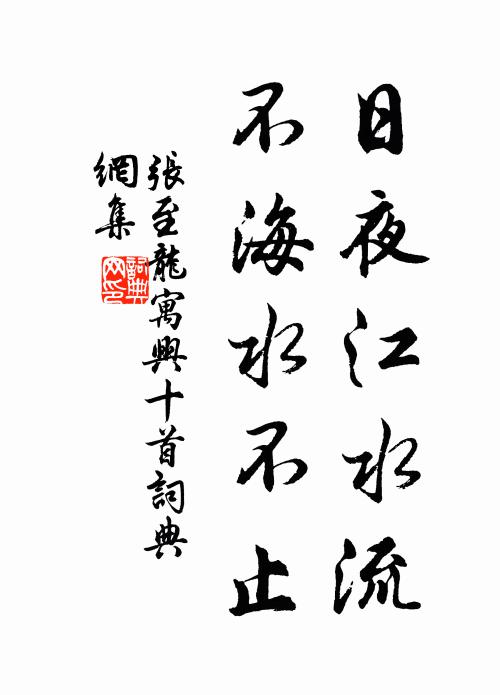 日夜江水流
不海水不止
張至龍寓興十首詞典
網集
詞典網印